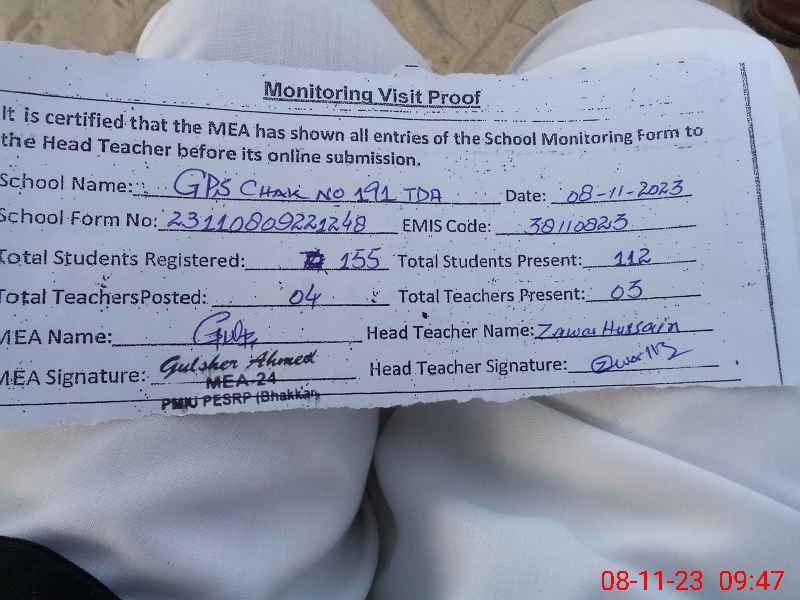 Monitoring Visit Proof
It is certified that the MEA has shown all entries of the School Monitoring Form to
the Head Teacher before its online submission.
School Name: GPS CHAK NO 191 TDA Date: 08-11-2023
School Form No: 23110809221248 EMIS Code: 38110823
Total Students Registered: 155 Total Students Present: 112
Total TeachersPosted: 04 Total Teachers Present: 03
MEA Name: Head Teacher Name: Zawar Hussain
MEA Signature: Gulsher Ahmed Head Teacher Signature:
MEA-24
PMIU PESRP (Bhakkar)
08-11-23 09:47